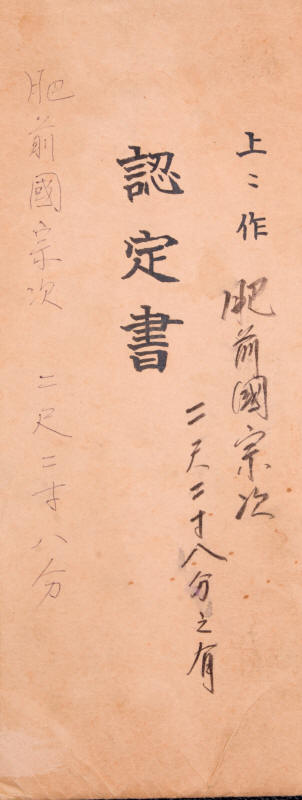 上〻作 肥前國宗次
二尺二寸八分之有
認定書
肥前國宗次 二尺二寸八分